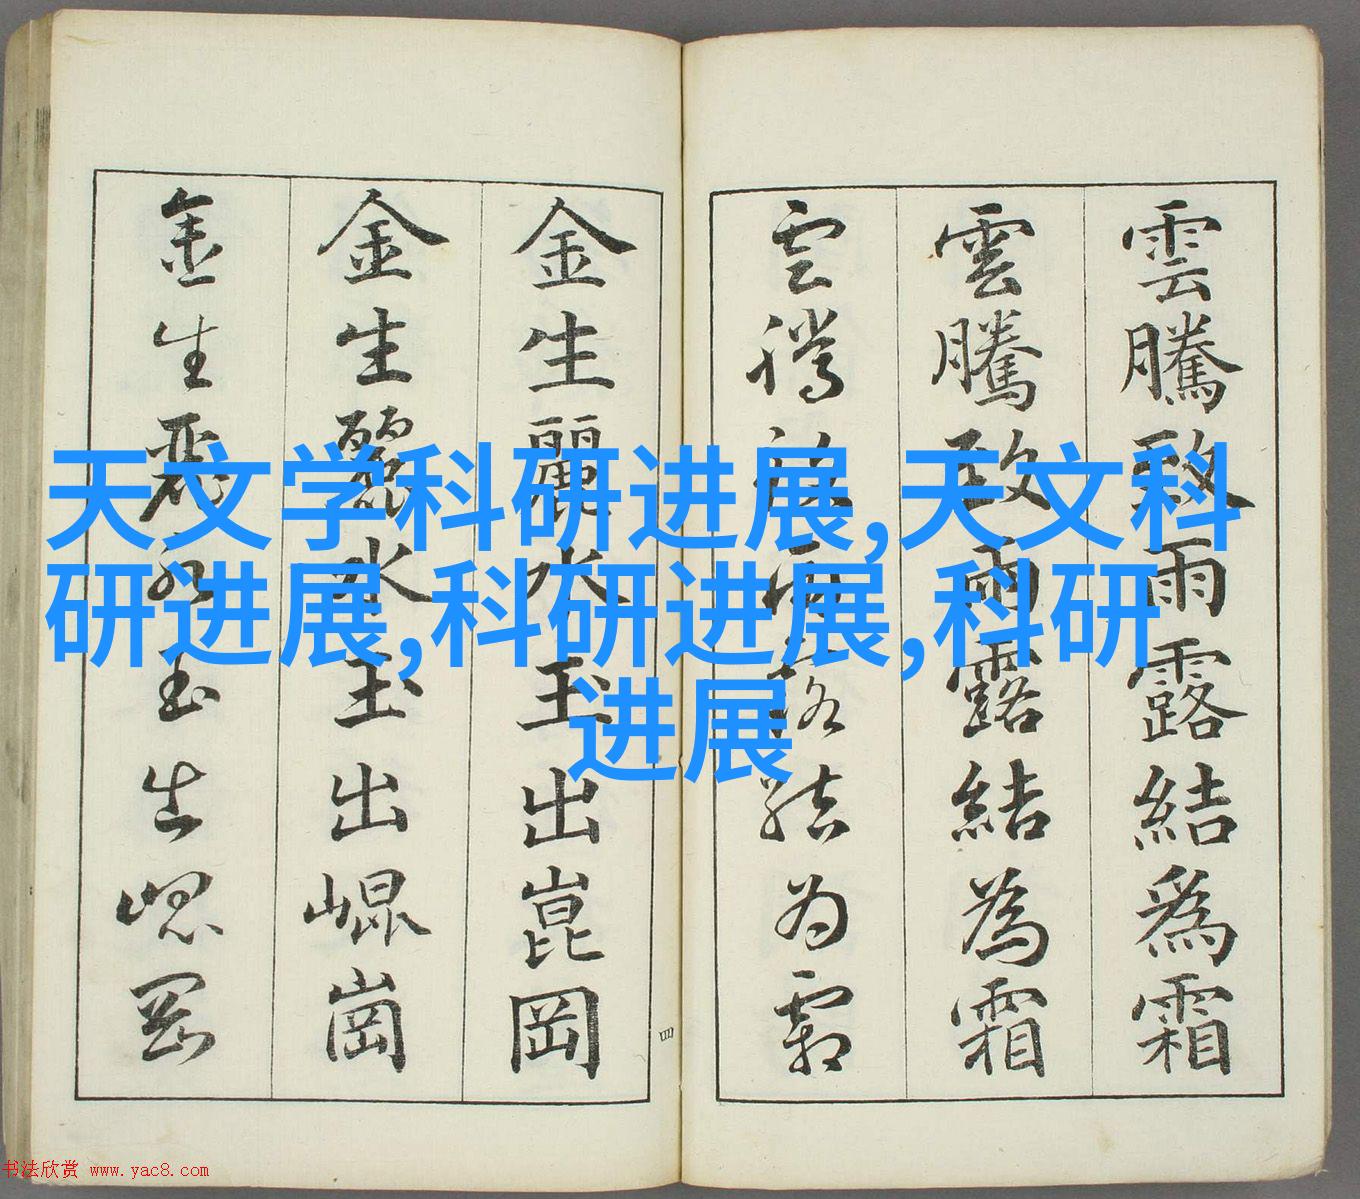 雲騰致雨露結爲霜
雲騰致雨露結為霜
雲騰致雨露結为霜
金生麗水玉出崑岡
金生麗水玉出崐崗
金生麗水玉出崐岡
四
天文学科研进展,天文科
研进展,科研进展,科研
进展
书法欣赏 www.yac8.com